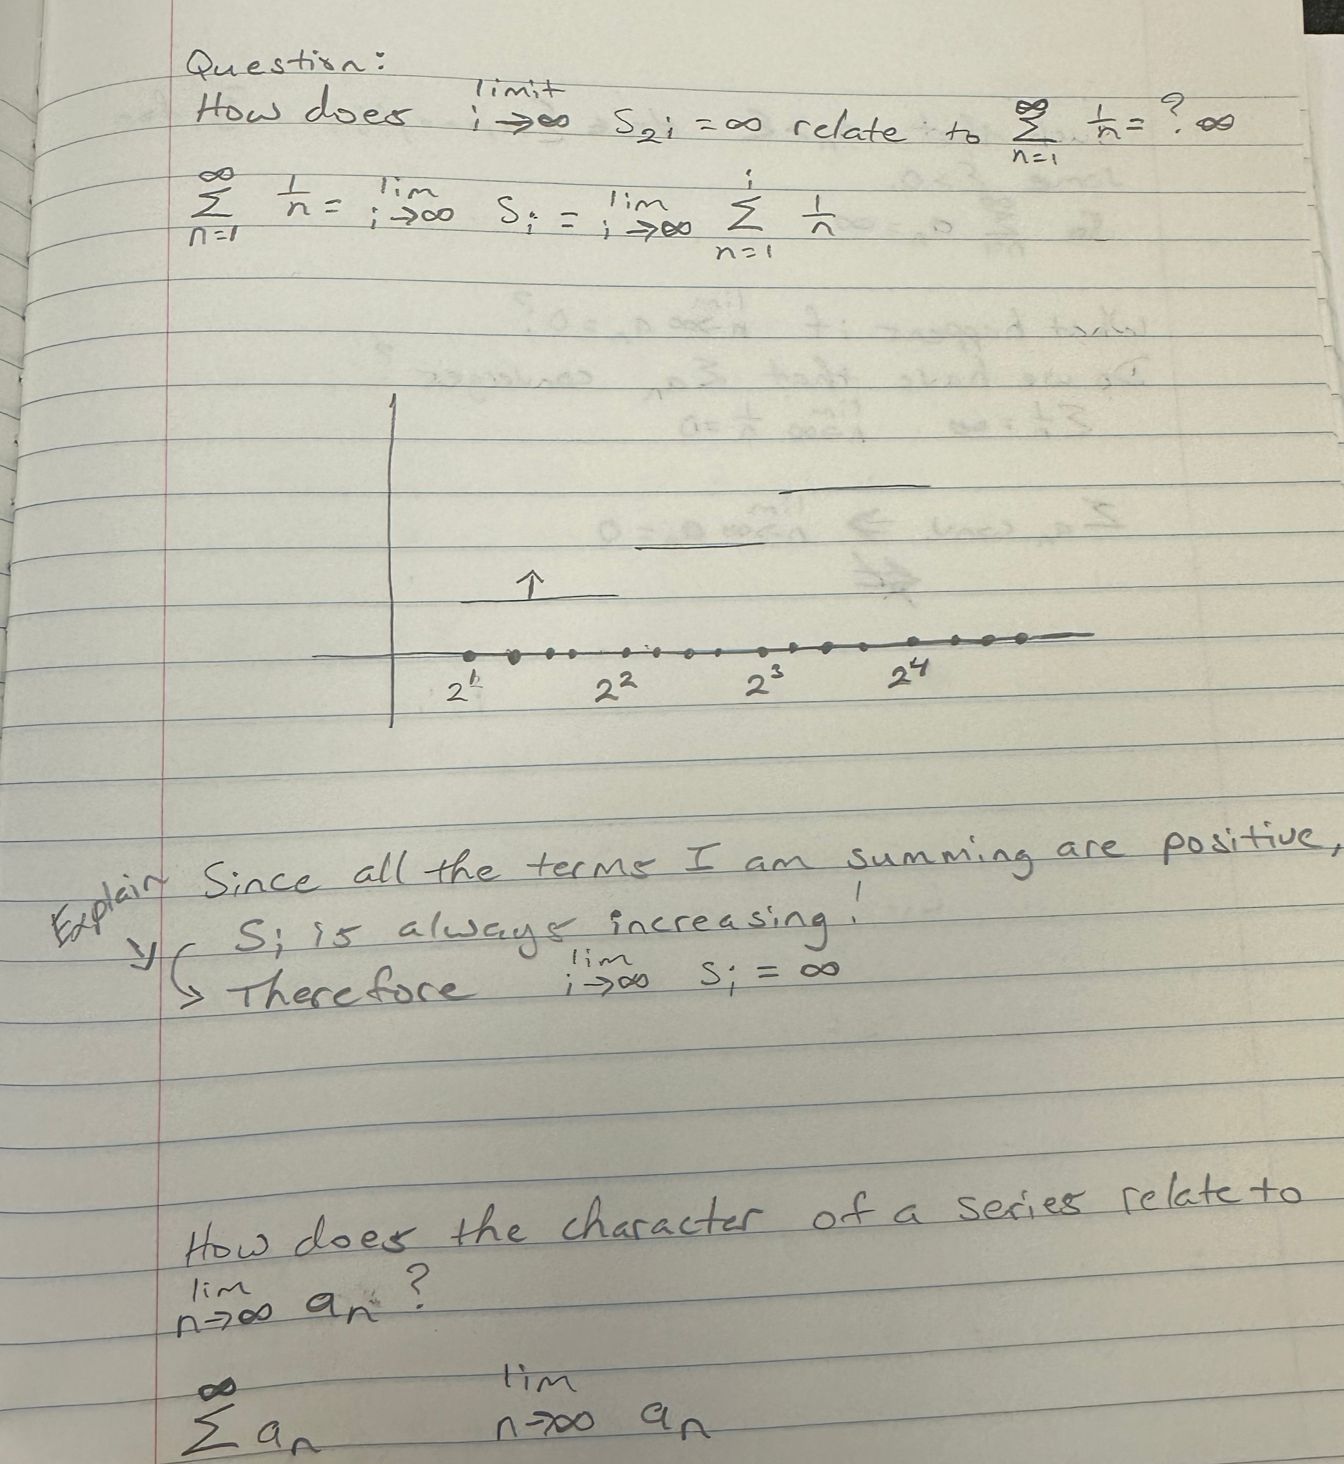 Question:
How does limit i→∞ S₂ᵢ = ∞ relate to ∞ Σ n=1 1/n = ? ∞
∞ Σ n=1 1/n = lim i→∞ Sᵢ = lim i→∞ i Σ n=1 1/n
2¹ 2² 2³ 2⁴
Explain
Since all the terms I am summing are positive,
Sᵢ is always increasing!
↳ Therefore lim i→∞ Sᵢ = ∞
How does the character of a series relate to
lim n→∞ aₙ ?
∞ Σ aₙ lim n→∞ aₙ